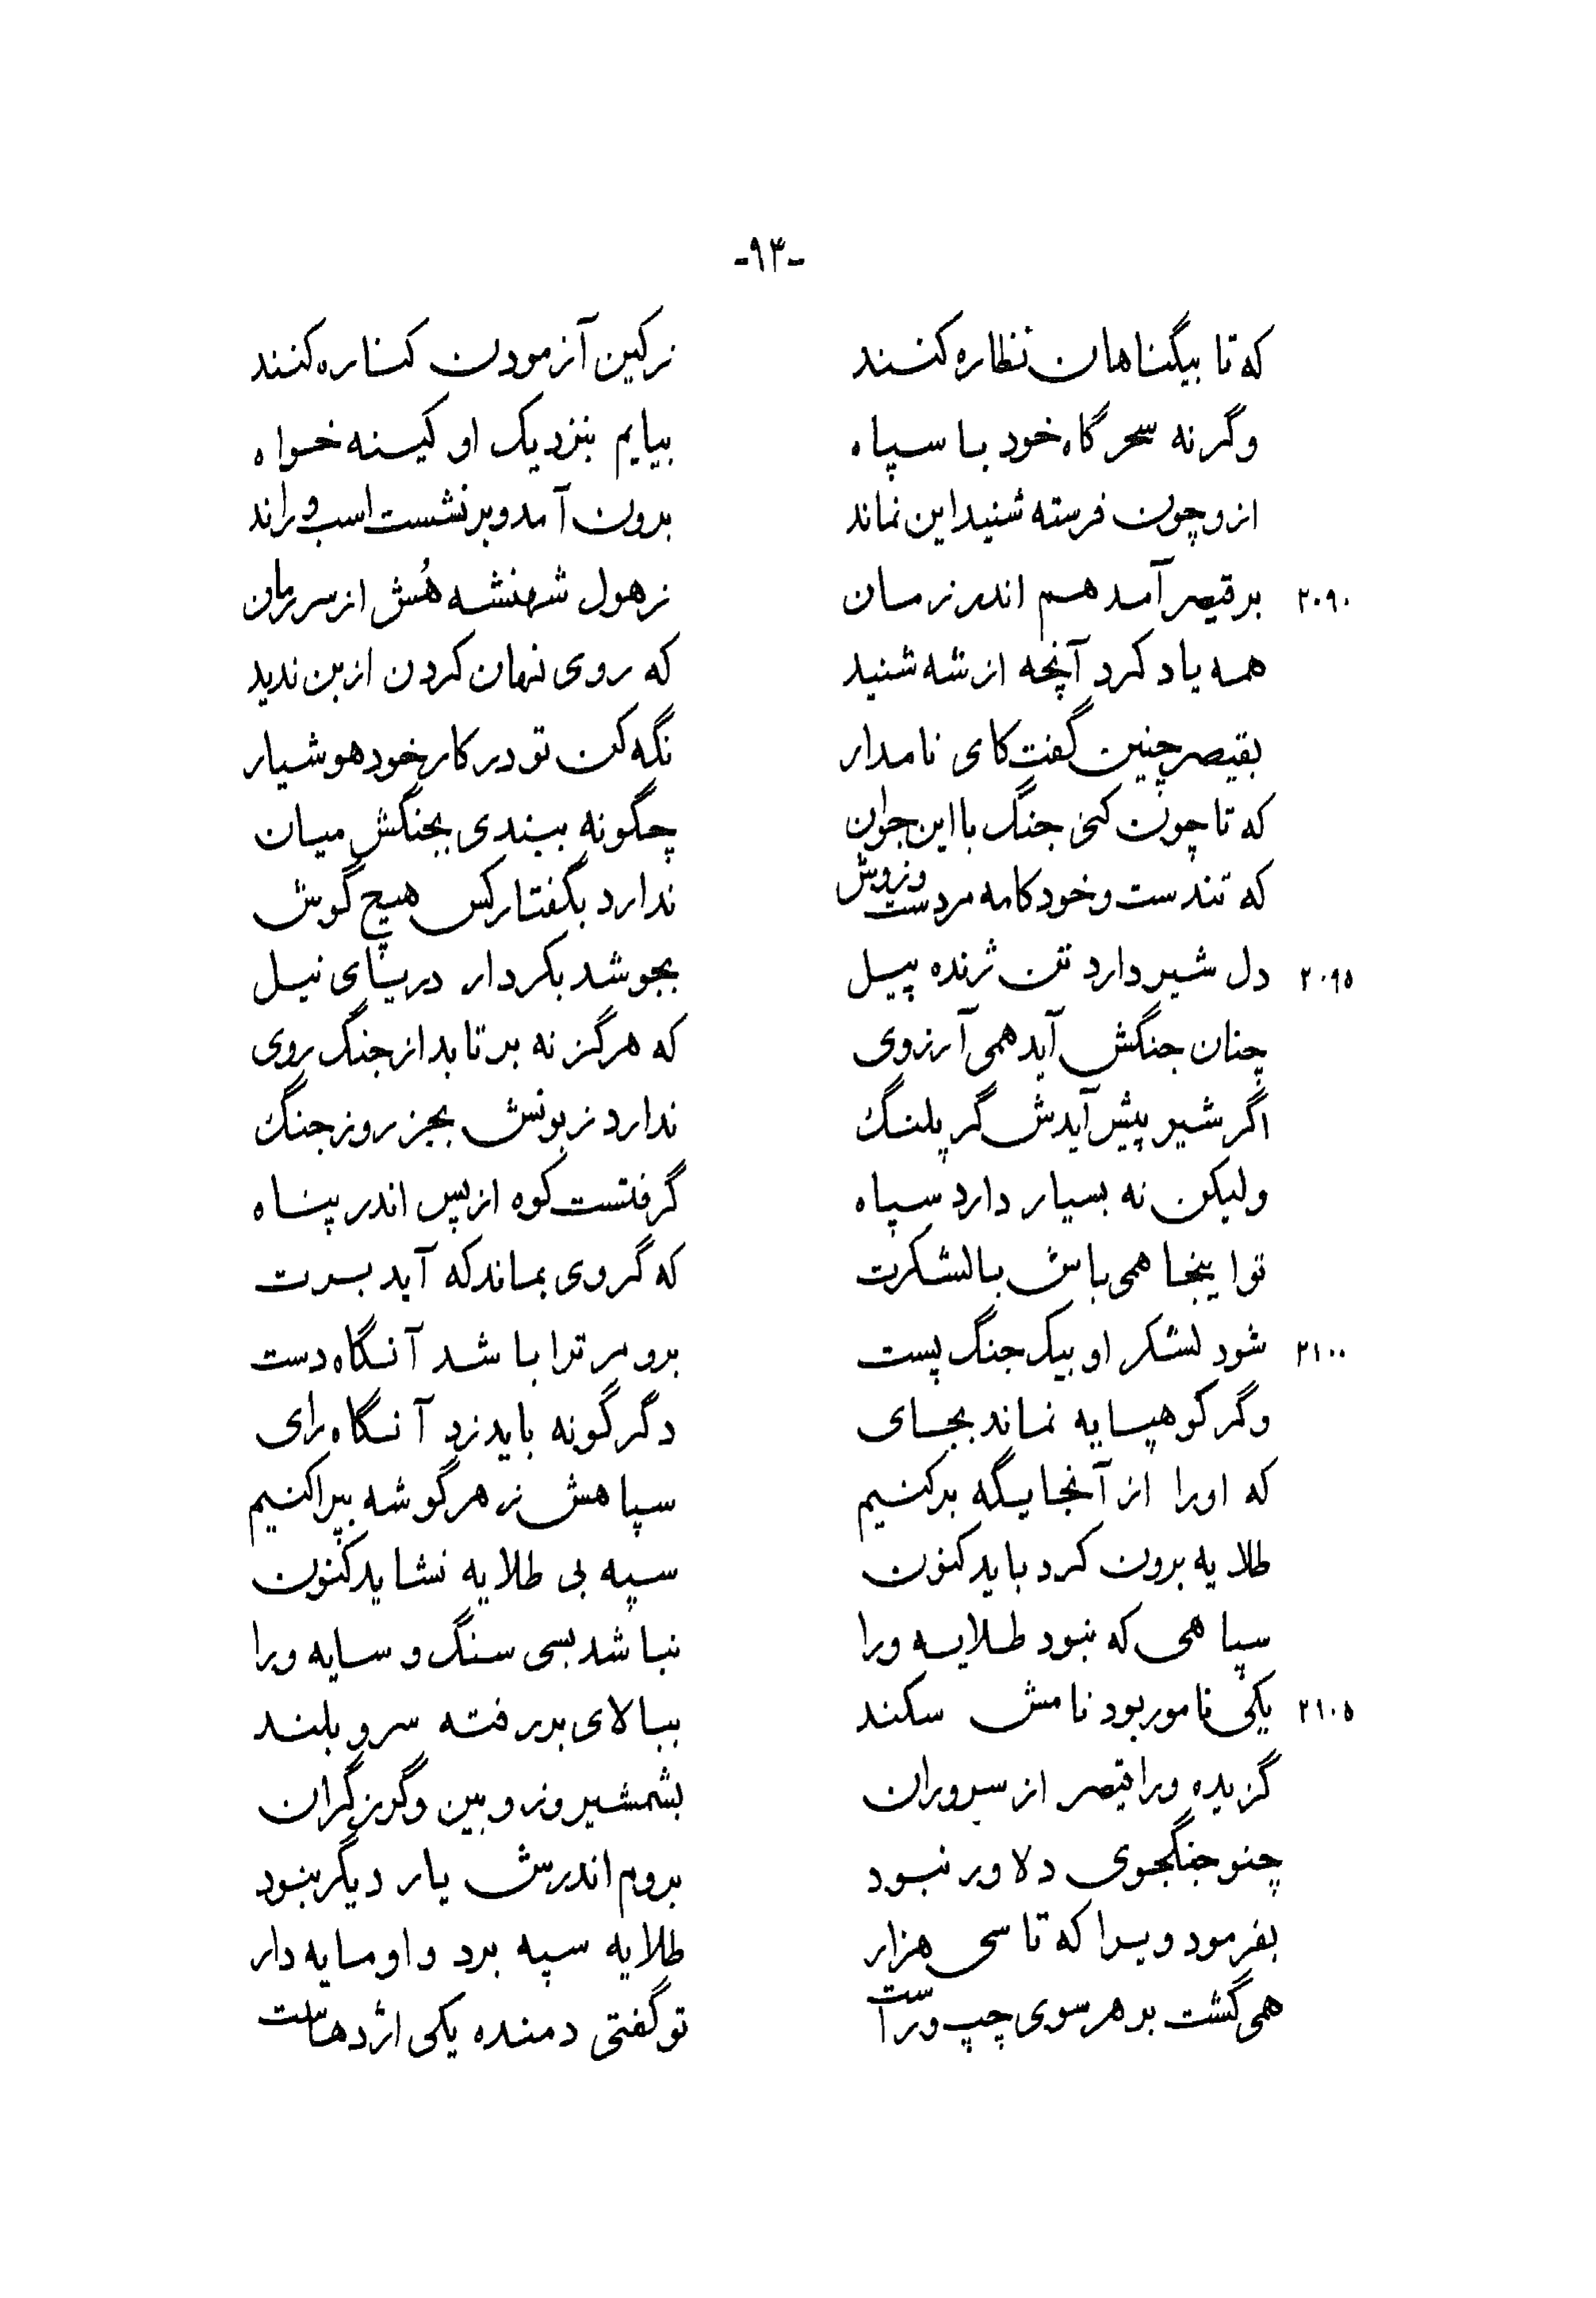 -۹۳-
که تا بیگناهان نظاره کنند زکین آزمودن کناره کنند
وگرنه سحرگاه خود با سپاه بیایم بنزدیک او کینه خواه
ازو چون فرسته شنید این نماند برون آمد و بر نشست اسب و راند
۲۰۹۰ بر قیصر آمد هم اندر زمان ز هول شهنشه هُش از سر رمان
همه یاد کرد آنچه از شه شنید که روی نهان کردن از بن ندید
بقیصر چنین گفت کای نامدار نگه کن تو در کار خود هوشیار
که تا چون کنی جنگ با این جوان چگونه ببندی بجنگش میان
که تندست و خودکامه مردست و زوش ندارد بگفتار کس هیچ گوش
۲۰۹۵ دل شیر دارد تن ژنده پیل بجوشد بکردار دریای نیل
چنان جنگش آید همی آرزوی که هرگز نه برتابد از جنگ روی
اگر شیر پیش آیدش گر پلنگ ندارد زبونش بجز روز جنگ
ولیکن نه بسیار دارد سپاه گرفتست کوه از پس اندر پناه
تو اینجا همی باش با لشکرت که گروی بماند که آید برت
۲۱۰۰ شود لشکر او بیک جنگ پست برو مر ترا باشد آنگاه دست
وگر کوهپایه نماند بجای دگرگونه باید زد آنگاه رای
که اورا از آنجایگه برکنیم سپاهش ز هر گوشه بپراکنیم
طلایه برون کرد باید کنون سپه بی طلایه نشاید کنون
سپاهی که نبود طلایه ورا نباشد بسی سنگ و سایه ورا
۲۱۰۵ یکی نامور بود نامش سکند ببالای بر رفته سرو بلند
گزیده ورا قیصر از سروران بشمشیر و زوبین و گرز گران
چنو جنگجوی دلاور نبود بروم اندرش یار دیگر نبود
بفرمود ویرا که تا سی هزار طلایه سپه برد و او مایه دار
همی گشت بر هر سوی چپ و راست تو گفتی دمنده یکی اژدهاست